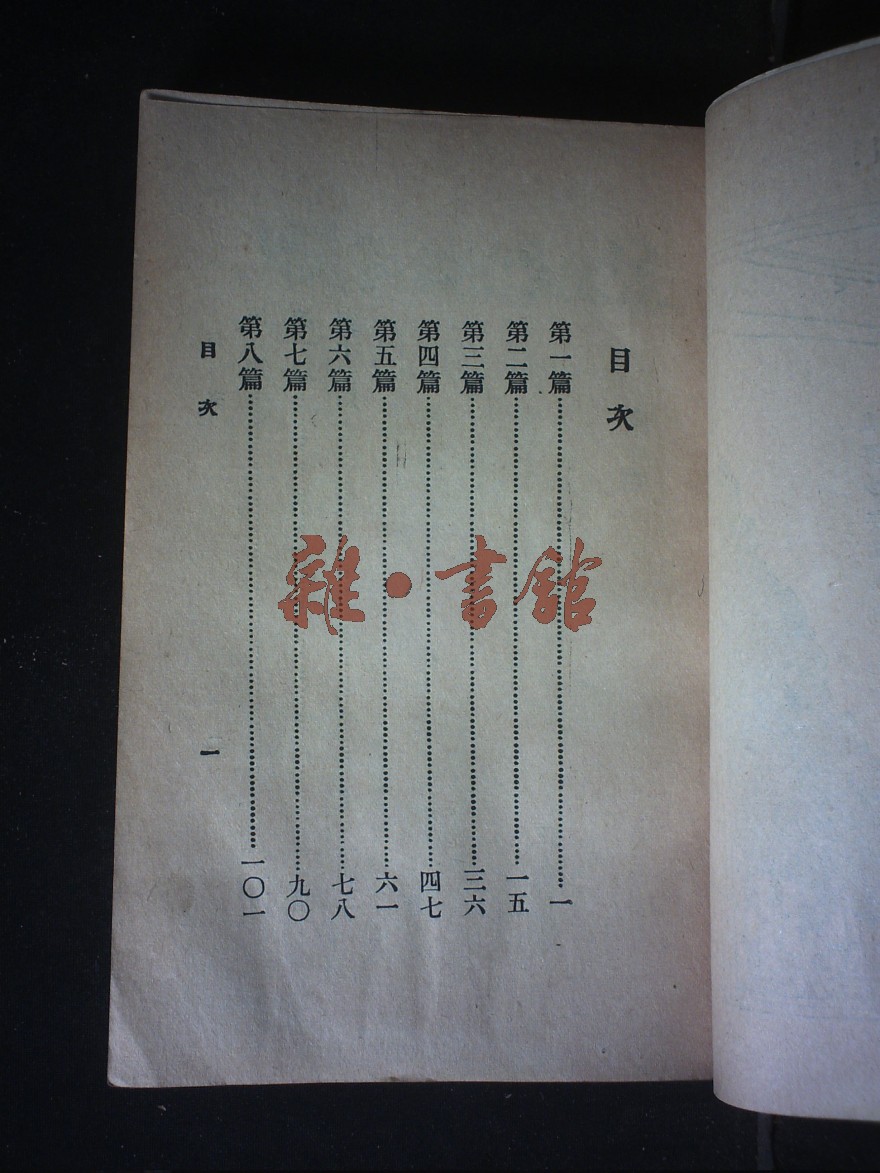 目次
第一篇……一
第二篇……一五
第三篇……三六
第四篇……四七
第五篇……六一
第六篇……七八
第七篇……九〇
第八篇……一〇一
目次
一
雜·書館